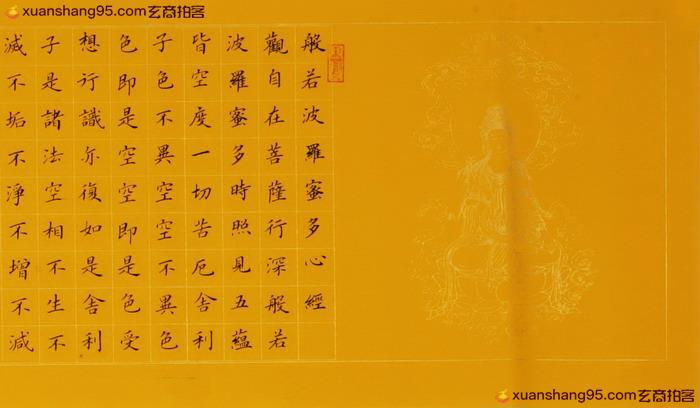 xuanshang95.com玄商拍客
般若波羅蜜多心經
觀自在菩薩行深般若
波羅蜜多時照見五蘊
皆空度一切苦厄舍利
子色不異空空不異色
色即是空空即是色受
想行識亦復如是舍利
子是諸法空相不生不
滅不垢不淨不增不減
xuanshang95.com玄商拍客